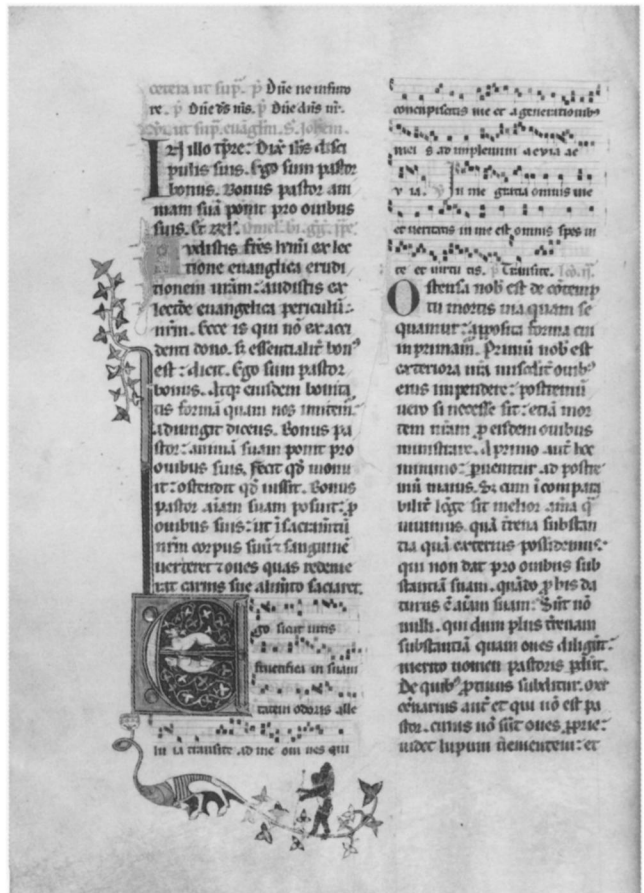 cetera ut sup. p̄ Dn̄e ne in furore
re. p̄ Dn̄e ds̄ ms̄. p̄ Dn̄e dn̄s nr̄.
ut sup. euāgl̄m. S. Joh̄em.
IN illo tp̄re: Dix̄ ih̄s disci
pulis suis. Ego sum pastor
bonus. Bonus pastor ani
mam suā ponit pro ouibus
suis. Et rel̄.
Audistis fr̄es kr̄mi ex lec
tione euangelica erudi
tionem ur̄am: audistis ex
lectōe euangelica periculū
nr̄m. Ecce is qui nō ex acci
denti dono. sꝫ essentialit̄ bonꝰ
est: dicit. Ego sum pastor
bonus. Atqꝫ eiusdem bonita
tis formā quam nos imitem̄:
adiungit dicens. Bonus pa
stor: animā suam ponit pro
ouibus suis. Fecit qd̄ monu
it: ostendit qd̄ iussit. Bonus
pastor aīam suam posuit: p̱
ouibus suis: ut ī sacramtū
nr̄m corpus suū ⁊ sanguinē
uerteret ⁊ oues quas redeme
rat carnis sue alimēto saciaret.
Ego sicut uitis
fructifica ui suaui
tatem odoris alle
lu ia transite ad me om nes qui
concupiscitis me et a generationibꝰ
mei s ad implemini a e v i a a e
v ia. In me gratia omnis uie
et ueritatis in me est omnis spes ui
te et uirtu tis. p̄ Transite. lcō. ij.
Ostensa nob̄ est de cōtemp
tu mortis uia quam se
quamur: apposita forma cui
inprimam̄. Primū nob̄ est
exteriora nr̄a misc̄dit̄ ouibꝰ
eius impendere: postremū
uero si necesse sit: etiā mor
tem nr̄am p̱ eisdem ouibus
ministrare. A primo aut̄ hoc
minimo: puenitur ad postre
mū maius. Sꝫ cum ī compara
bilit̄ lōge sit melior aīa q̄
uiuimus. quā t̄rena substan
tia quā exterius possidemus:
qui non dat pro ouibus sub
stantiā suam. quādo p̱ his da
turus ē aīam suam: Sūt nō
nulli. qui dum plus t̄renam
substantiā quam oues diligūt:
merito nomen pastoris p̱dūt.
De quibꝰ p̱tinus subditur. Mer
cennarius aut̄ et qui nō est pa
stor. cuius nō sūt oues p̱prie:
uidet lupum uenientem: et